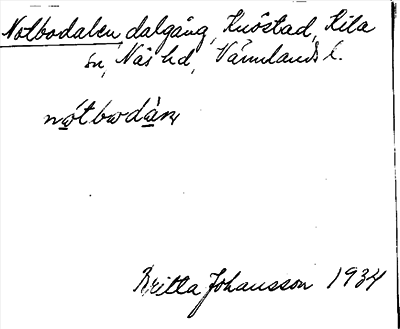 Notbodalen, dalgång, Knöstad, Kila
sn, Näs hd, Värmlands l.
nótbωdàn
Britta Johansson 1934